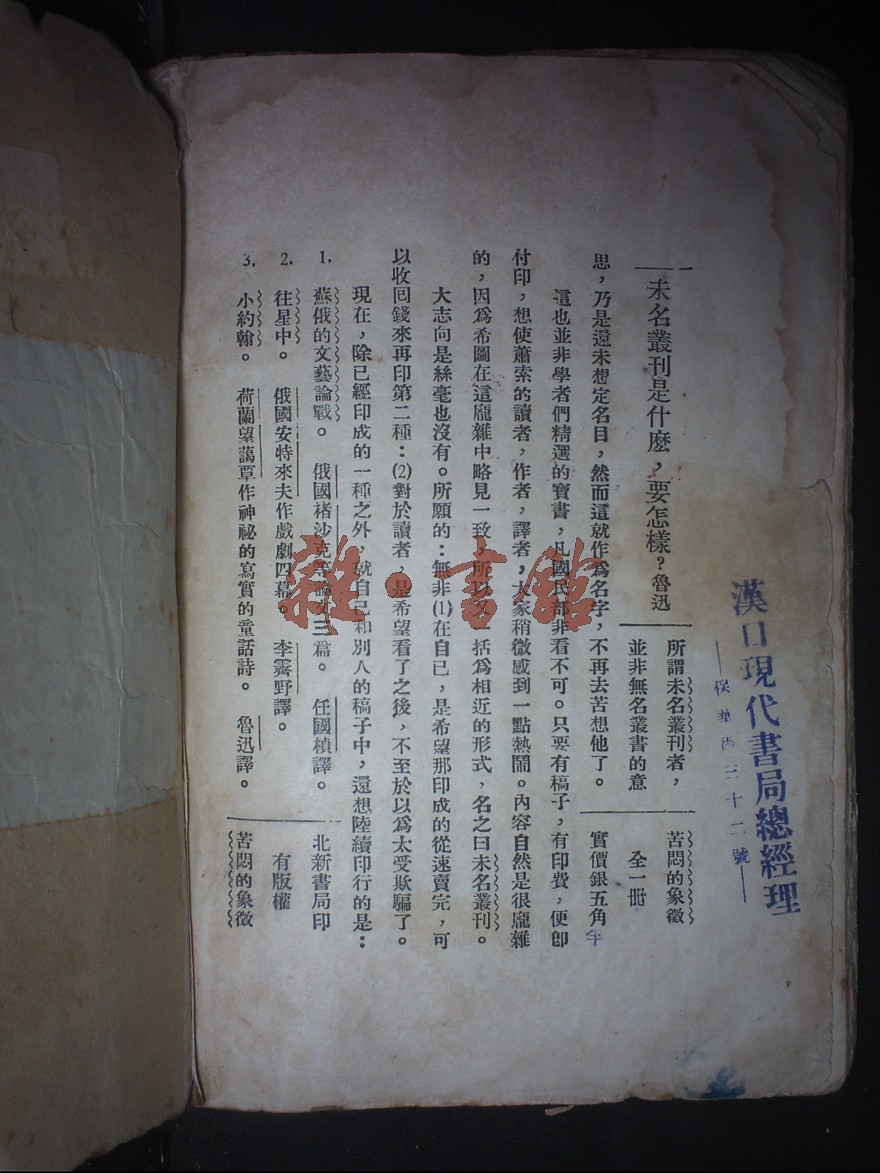 漢口現代書局總經理
保華街三十二號
未名叢刊是什麽，要怎樣？魯迅
所謂未名叢刊者，
並非無名叢書的意
思，乃是還未想定名目，然而這就作爲名字，不再去苦想他了。
這也並非學者們精選的寶書，凡國民都非看不可。只要有稿子，有印費，便卽
付印，想使蕭索的讀者，作者，譯者，大家稍微感到一點熱鬧。內容自然是很龐雜
的，因爲希圖在這龐雜中略見一致，所以又一括爲相近的形式，名之曰未名叢刊。
大志向是絲毫也沒有。所願的：無非(1)在自己，是希望那印成的從速賣完，可
以收回錢來再印第二種：(2)對於讀者，是希望看了之後，不至於以爲太受欺騙了。
現在，除已經印成的一種之外，就自己和別人的稿子中，還想陸續印行的是：
1. 蘇俄的文藝論戰。 俄國楮沙克等論文三篇。 任國楨譯。
2. 往星中。 俄國安特來夫作戲劇四幕。 李霽野譯。
3. 小約翰。 荷蘭望藹覃作神祕的寫實的童話詩。 魯迅譯。
苦悶的象徵
全一冊
實價銀五角半
北新書局印
有版權
苦悶的象徵
雜·書館